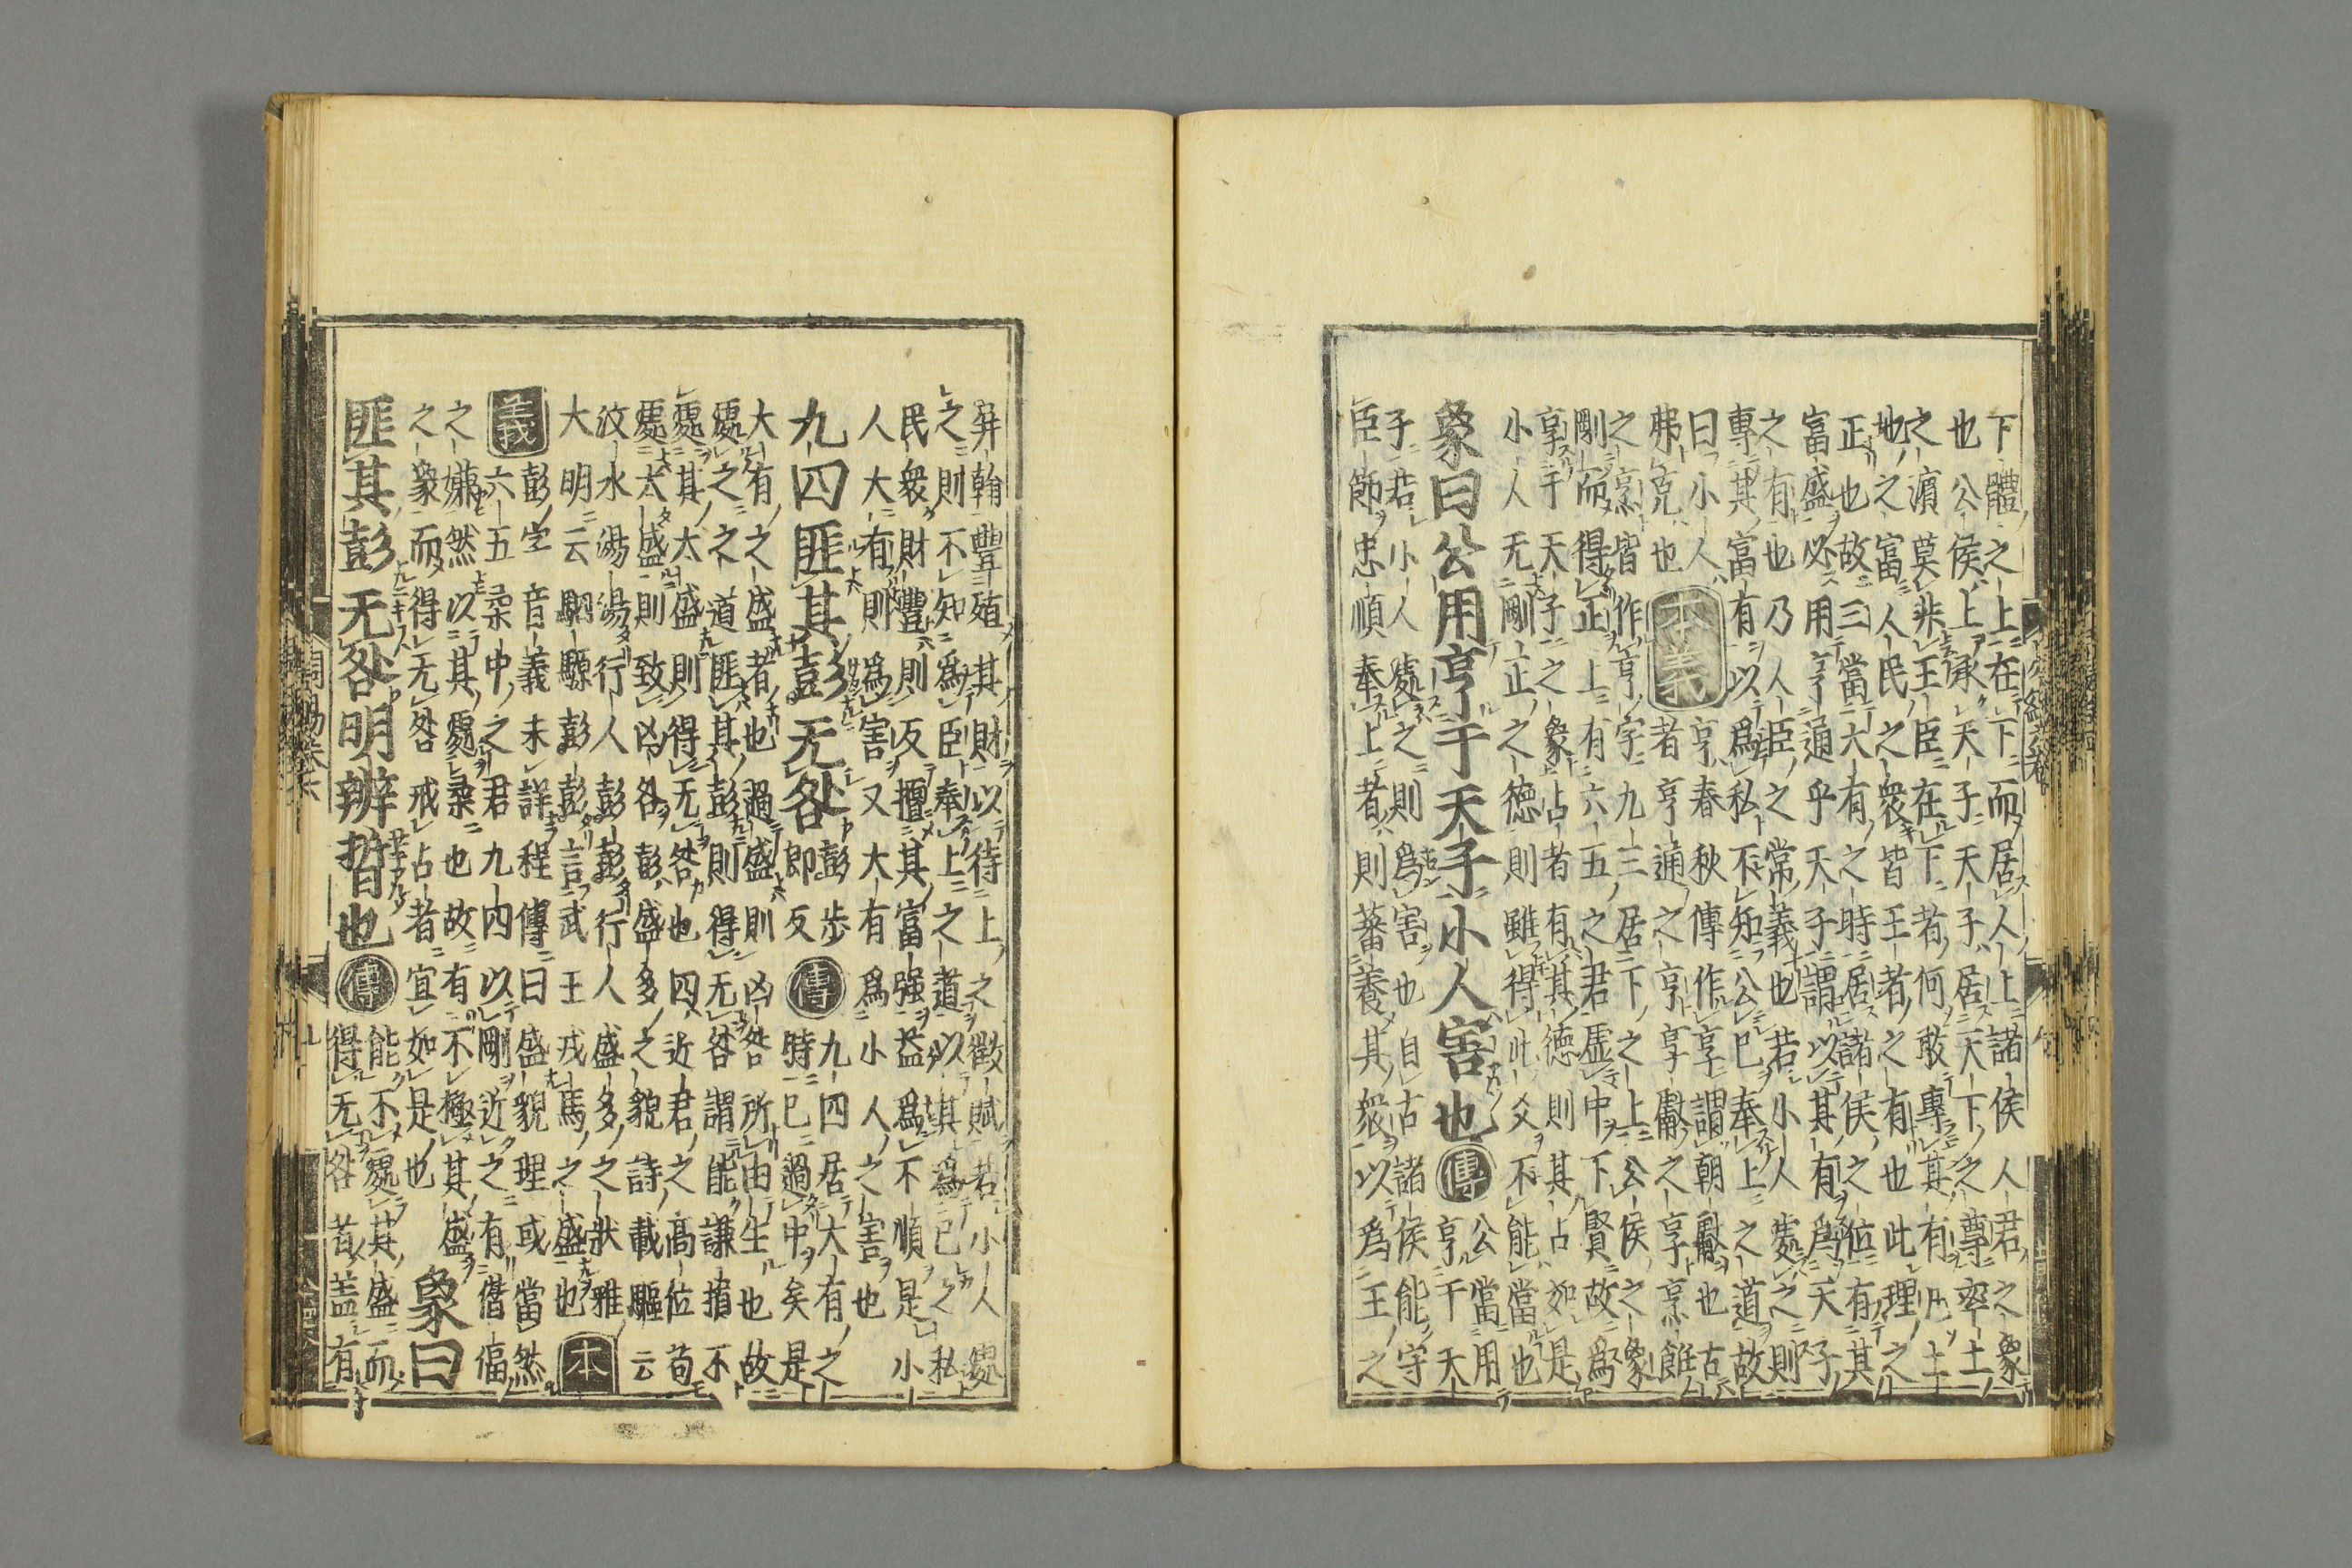 下體之上在下而居人上諸侯人君之象
也公侯上承天子天子居天下之尊率土
之濱莫非王臣在下者何敢專其有凡土
地之富人民之衆皆王者之有也此理之
正也故三當大有之時居諸侯之位有其
富盛必用亨通乎天子謂以其有爲天子
之有也乃人臣之常義也若小人處之則
專其富有以爲私不知公已奉上之道故
曰小人
弗克也
本義
亨春秋傳作享謂朝獻也古
者亨通之亨享獻之享烹飪
之烹皆作亨字九三居下之上公侯之象
剛而得正上有六五之君虚中下賢故爲
享于天子之象占者有其德則其占如是
小人无剛正之德則雖得此爻不能當也
象曰公用亨于天子小人害也
傳
公當用
亨于天
子若小人處之則爲害也自古諸侯能守
臣節忠順奉上者則蕃養其衆以爲王之
屏翰豐殖其財以待上之徵賦若小人處
之則不知爲臣奉上之道以其爲已之私
民衆財豐則反擅其富强益爲不順是小
人大有則爲害又大有爲小人之害也
九四匪其彭无咎
彭歩
即反
傳
九四居大有之
時已過中矣是
大有之盛者也過盛則凶咎所由生也故
處之之道匪其彭則得无咎謂能謙損不
處其太盛則得无咎也四近君之高位苟
處太盛則致凶咎彭盛多之貌詩載驅云
汶水湯湯行人彭彭行人盛多之狀雅
大明云駟騵彭彭言武王戎馬之盛也
本義
彭字音義未詳程傳曰盛貌理或當然
六五柔中之君九四以剛近之有僭偪
之嫌然以其處柔也故有不極其盛
之象而得无咎戒占者宜如是也
象曰
匪其彭无咎明辨晢也
傳
能不處其盛而
得无咎者蓋有